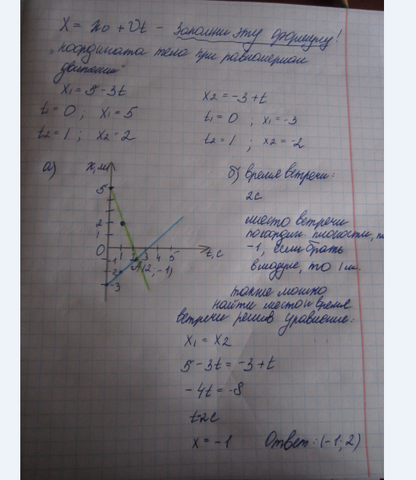 X = x0 + Vt - Запомни эту формулу!
"координата тела при равномерном
движении"
x1 = 5 - 3t
x2 = -3 + t
t1 = 0 ; x1 = 5
t1 = 0 ; x1 = -3
t2 = 1 ; x2 = 2
t2 = 1 ; x2 = -2
а)
x, м
5
2
1
0
1 2 3 4 5
t, с
-1
-2
-3
A(2, -1)
б) время встречи:
2с
место встречи
координ плоскости,
-1, если брать
в модуле, то 1 м.
также можно
найти место и время
встречи решив уравнение:
x1 = x2
5 - 3t = -3 + t
-4t = -8
t=2c
x = -1
Ответ: (-1; 2)